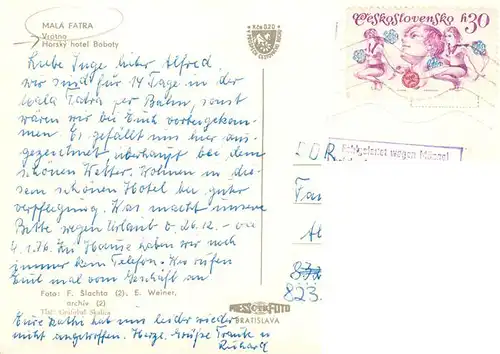 MALÁ FATRA
Vrátna
Horský hotel Boboty
Kčs 0,20
Československo h30
Liebe Inge, lieber Alfred,
wir sind für 14 Tage in der
Mala Fatra per Bahn, sonst
wären wir bei Euch vorbeigekom-
men. Es gefällt uns hier aus-
gezeichnet überhaupt bei dem
schönen Wetter. Wohnen in die-
sem schönen Hotel bei guter
Verpflegung. Was macht unsere
Bitte wegen Urlaub v. 26.12. -
4.1.76. Zu Hause haben wir noch
immer kein Telefon. Wir rufen
Euch mal vom Geschäft an
DDR
wegen
Fa
823
Foto: F. Šlachta (2), E. Weiner,
archív (2)
BRATISLAVA
Eure Kathi hat uns leider wieder
nicht angetroffen. Herzl. Grüße Traute u.
Richard